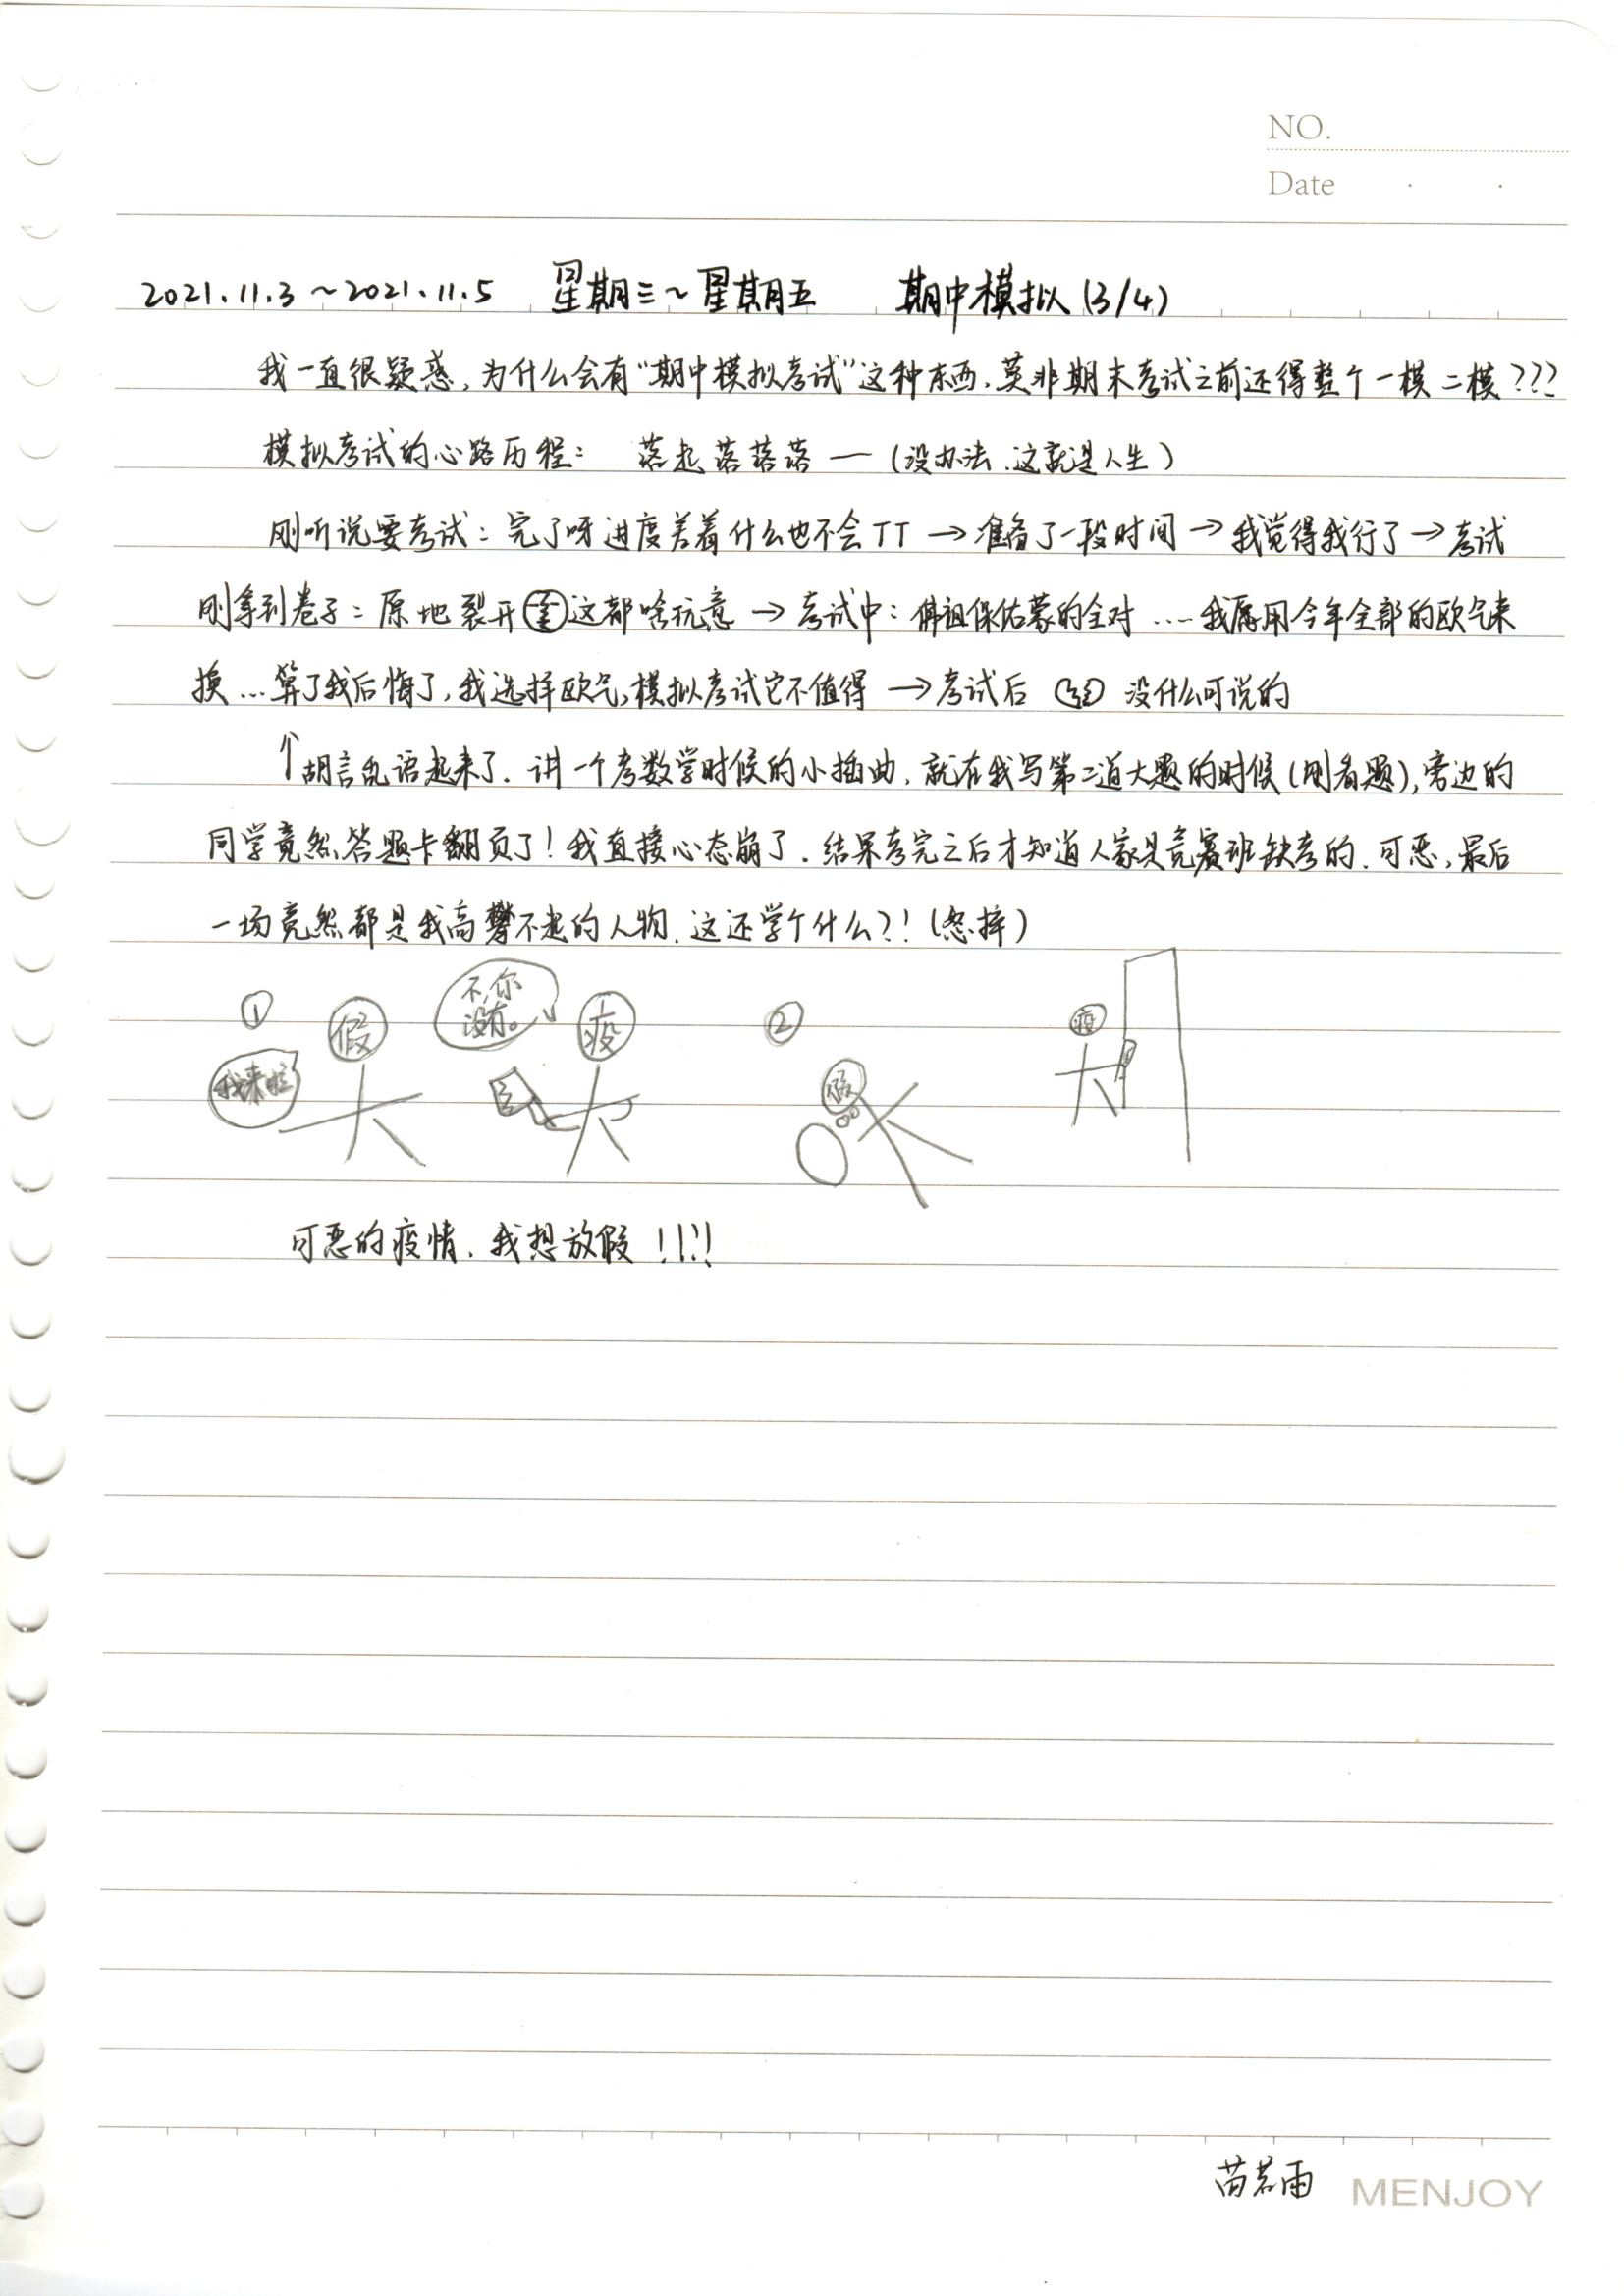 NO.
Date
2021.11.3~2021.11.5 星期三~星期五 期中模拟(3/4)
我一直很疑惑,为什么会有“期中模拟考试”这种东西,莫非期末考试之前还得整个一模二模???
模拟考试的心路历程: 落起落落落—(没办法,这就是人生)
刚听说要考试:完了呀进度差着什么也不会TT→准备了一段时间→我觉得我行了→考试
刚拿到卷子:原地裂开 这都啥玩意→考试中:佛祖保佑蒙的全对……我愿用今年全部的欧气来
换…算了我后悔了,我选择欧气,模拟考试它不值得→考试后 没什么可说的
↑胡言乱语起来了.讲一个考数学时候的小插曲,就在我写第二道大题的时候(刚看题),旁边的
同学竟然答题卡翻页了!我直接心态崩了.结果考完之后才知道人家是竞赛班缺考的.可恶,最后
一场竟然都是我高攀不起的人物.这还学个什么?!(怒摔)
① 我来啦 假 不,你没有。 疫 ② 假 疫
可恶的疫情.我想放假!!!!
苗若雨 MENJOY